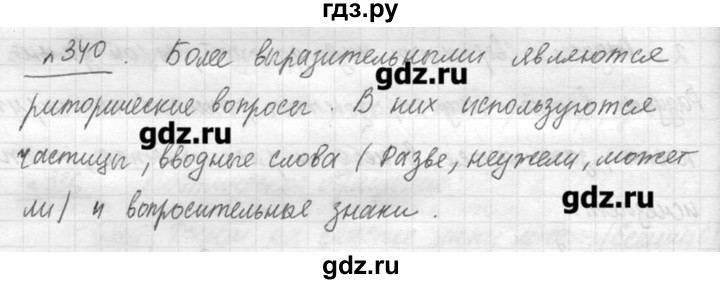 гдз.ру
n 340. Более выразительными являются
gdz.ru
риторические вопросы. В них используются
gdz.ru
частицы, вводные слова (Разве, неужели, может
ли) и вопросительные знаки.
gdz.ru
gdz.ru